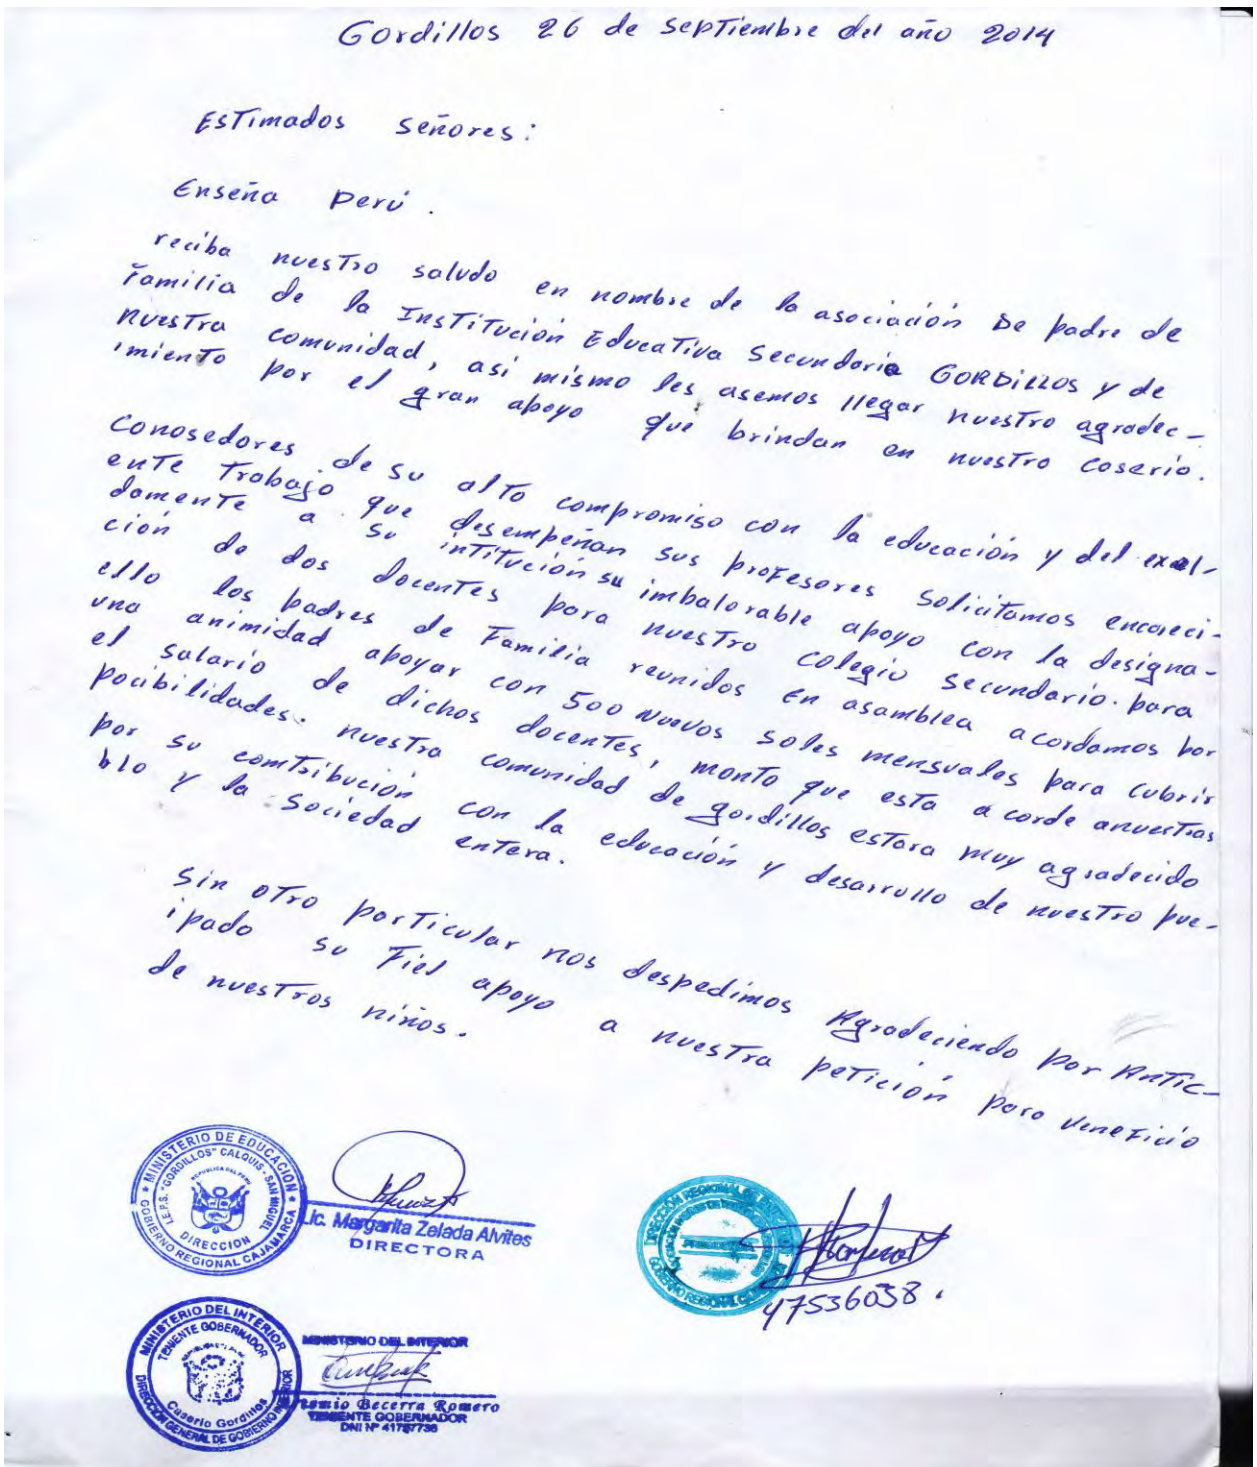 Gordillos 26 de septiembre del año 2014
Estimados señores:
Enseña Perú.
reciba nuestro saludo en nombre de la asociación De padre de
Familia de la Institución Educativa Secundaria GORDILLOS y de
nuestra comunidad, así mismo les asemos llegar nuestro agradec-
imiento por el gran apoyo que brindan en nuestro coserio.
Conosedores de su alto compromiso con la educación y del exel-
ente trabajo que desempeñan sus profesores solicitamos encareci-
damente a su intitución su imbalorable apoyo con la designa-
ción de dos docentes para nuestro colegio secundario. para
ello los padres de Familia reunidos en asamblea acordamos por
una animidad apoyar con 500 Nuevos soles mensuales para cubrir
el salario de dichos docentes, monto que esta acorde anuestras
pocibilidades. nuestra comunidad de gordillos estara muy agradecido
por su comtribución con la educación y desarrollo de nuestro pue-
blo y la Sociedad entera.
Sin otro particular nos despedimos Agradeciendo por Antic-
ipado su Fiel apoyo a nuestra petición para veneficio
de nuestros niños.
MINISTERIO DE EDUCACION
I.E.P.S. "GORDILLOS" CALQUIS - SAN MIGUEL
REPUBLICA DEL PERU
DIRECCION
GOBIERNO REGIONAL CAJAMARCA
Lic. Margarita Zelada Alvites
DIRECTORA
DIRECCION REGIONAL DE
GOBIERNO REGIONAL
47536038.
MINISTERIO DEL INTERIOR
TENIENTE GOBERNADOR
Caserio Gordillos
DIRECCIÓN GENERAL DE GOBIERNO INTERIOR
MINISTERIO DEL INTERIOR
Becerra Romero
TENIENTE GOBERNADOR
DNI Nº 41787736